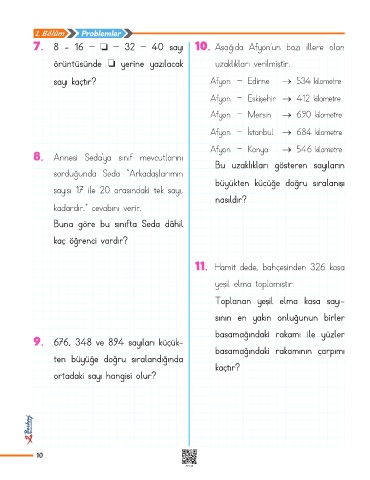 1. Bölüm Problemler
7. 8 - 16 - ❏ - 32 - 40 sayı
örüntüsünde ❏ yerine yazılacak
sayı kaçtır?
8. Annesi Seda'ya sınıf mevcutlarını
sorduğunda Seda "Arkadaşlarımın
sayısı 17 ile 20 arasındaki tek sayı,
kadardır." cevabını verir.
Buna göre bu sınıfta Seda dâhil
kaç öğrenci vardır?
9. 676, 348 ve 894 sayıları küçük-
ten büyüğe doğru sıralandığında
ortadaki sayı hangisi olur?
10. Aşağıda Afyon'un bazı illere olan
uzaklıkları verilmiştir.
Afyon - Edirne → 534 kilometre
Afyon - Eskişehir → 412 kilometre
Afyon - Mersin → 690 kilometre
Afyon - İstanbul → 684 kilometre
Afyon - Konya → 546 kilometre
Bu uzaklıkları gösteren sayıların
büyükten küçüğe doğru sıralanışı
nasıldır?
11. Hamit dede, bahçesinden 326 kasa
yeşil elma toplamıştır.
Toplanan yeşil elma kasa sayı-
sının en yakın onluğunun birler
basamağındaki rakamı ile yüzler
basamağındaki rakamının çarpımı
kaçtır?
10